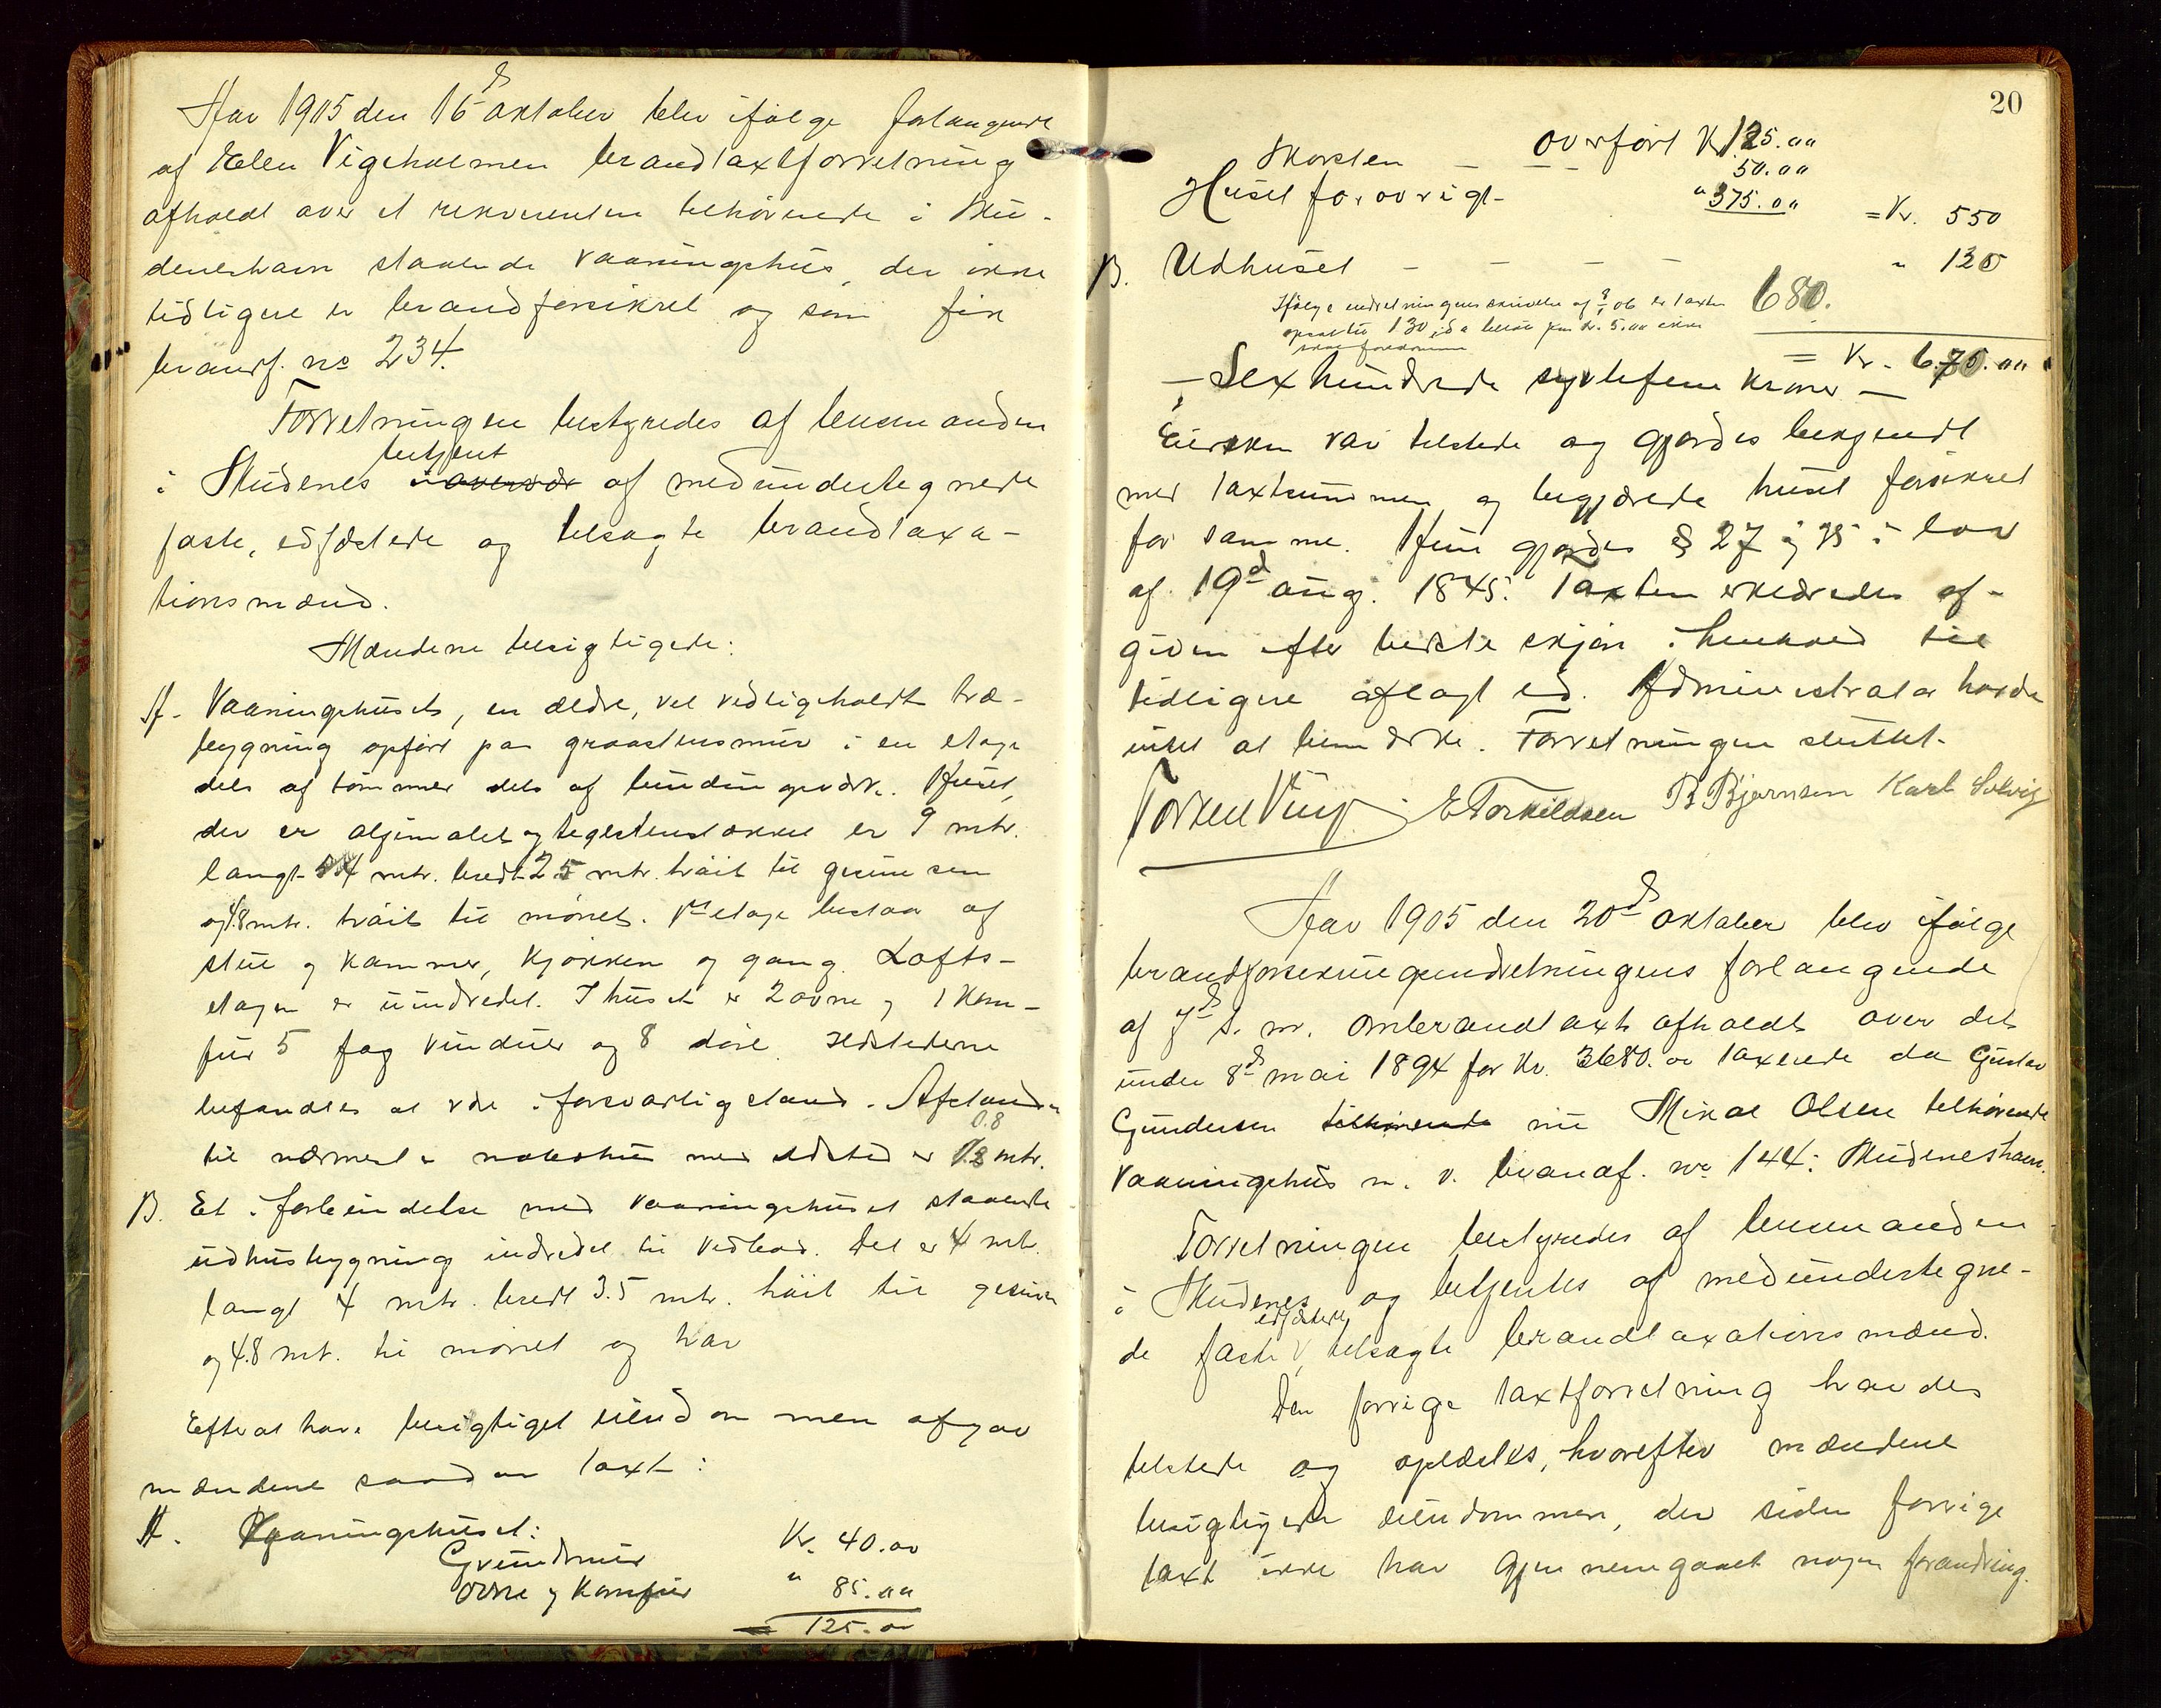 Aar 1905 den 16d oktober blev ifølge forlangende
af Elen Vigeholmen brandtaxtforretning
afholdt over et rekvirenten tilhørende i Sku-
deneshavn staaende vaaningshus, der ikke
tidligere er brandforsikret og som fik
brandf. no 234.
Forretningen bestyredes af lensmanden
i Skudenes betjent af medundertegnede
faste, edfæstede og tilsagte brandtaxa-
tionsmænd.
Mændene besigtigede:
A. Vaaningshuset, en ældre, vel vedligeholdt træ-
bygning opført paa graastensmur i en etage
dels af tømmer dels af bindingsværk. Huset,
der er oljemalet og teglstenstækket er 9 mtr.
langt 5.4 mtr. bredt 2.5 mtr. høit til gesimsen
og 4.8 mtr. høit til mønet. 1ste etage bestaar af
stue og kammer, kjøkken og gang. Lofts-
etagen er uindredet. I huset er 2 ovne og 1 kom-
fur 5 fag vinduer og 8 døre. Ildstederne
befandtes at være i forsvarlig stand. Afstanden
til nærmeste nabohus med ildsted er 0.8 mtr.
B. Et i forbindelse med vaaningshuset staaende
udhusbygning indredet til vedbod. Det er 4 mtr.
langt 4 mtr. bredt 3.5 mtr. høit til gesimsen
og 4.8 mtr. til mønet og har
Efter at have besigtiget eiendommen afgav
mændene saadan taxt:
A. Vaaningshuset:
Grundmur Kr. 40.00
Ovne og komfur " 85.00
= 125.00
20
Overført Kr. 125.00
Skorsten — — 50.00
Huset forøvrigt - " 375.00 = Kr. 550
B. Udhuset - - - - " 130
680.
Ifølge indretningens skrivelse af 8/1 06 er taxten
opsat til 130, da beløb paa kr. 5.00 ikke
skal forekomme
= Kr. 680.00
— Sexhundrede syvtifem kroner —
Eiersken var tilstede og gjordes bekjendt
med taxtsummen og begjærede huset forsikret
for samme. Hun gjordes § 27 og 35 i lov
af 19d aug. 1845. Taxten erklæredes af-
given efter bedste skjøn i henhold til
tidligere aflagt ed. Administrator havde
intet at bemærke. Forretningen sluttet.
Torkell Ving. E Torkildsen B Bjørnsen Karl Solvig
Aar 1905 den 20d oktober blev ifølge
brandforsikringsindretningens forlangende
af 7d s. m. ombrandtaxt afholdt over det
under 8d mai 1894 for kr. 3680.00 taxerede da Gustav
Gundersen tilhørende nu Mikal Olsen tilhørende
vaaningshus m. v. brandf. no 144 i Skudeneshavn.
Forretningen bestyredes af lensmanden
i Skudenes og betjentes af medundertegne-
de faste, edfæstede, tilsagte brandtaxationsmænd.
Den forrige taxtforretning havdes
tilstede og oplæstes, hvorefter mændene
besigtigede eiendommen, der siden forrige
taxt ikke har gjennemgaaet nogen forandring.